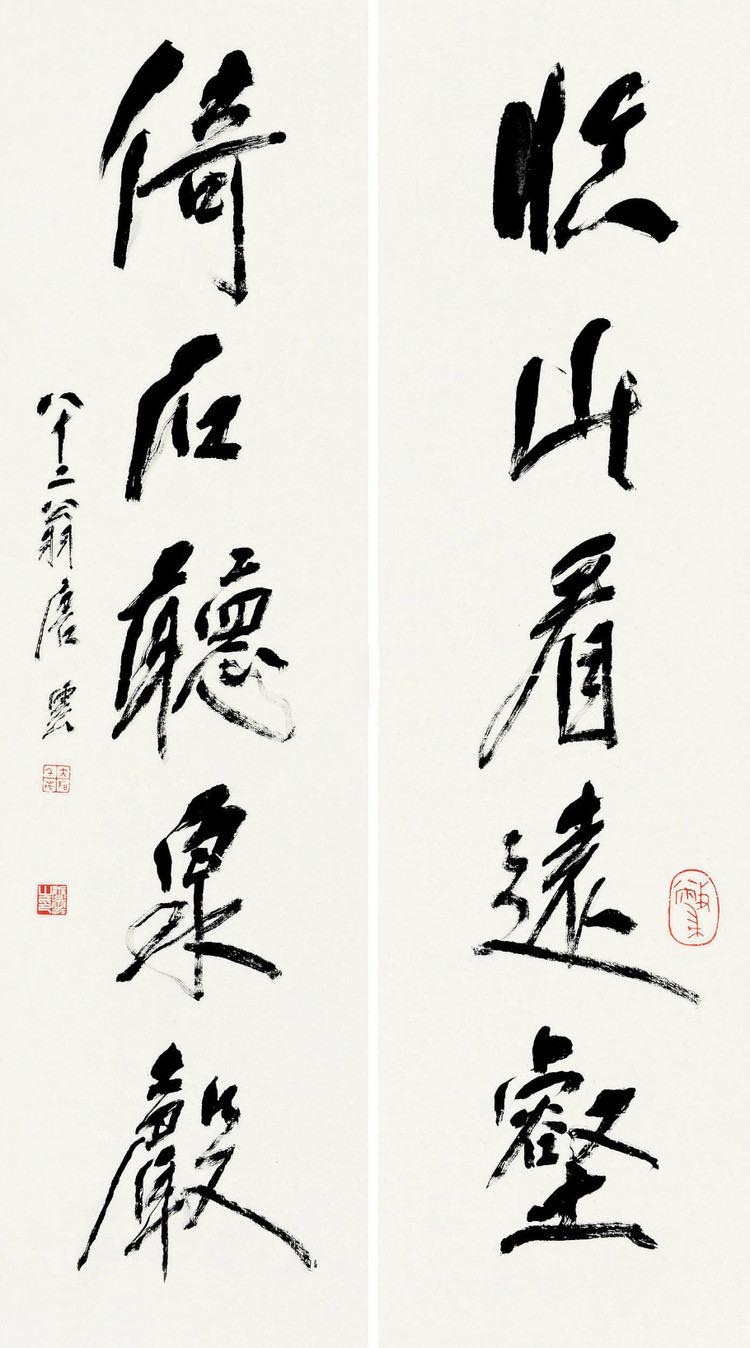 臨山看遠壑
倚石聽泉聲
八十二翁唐雲